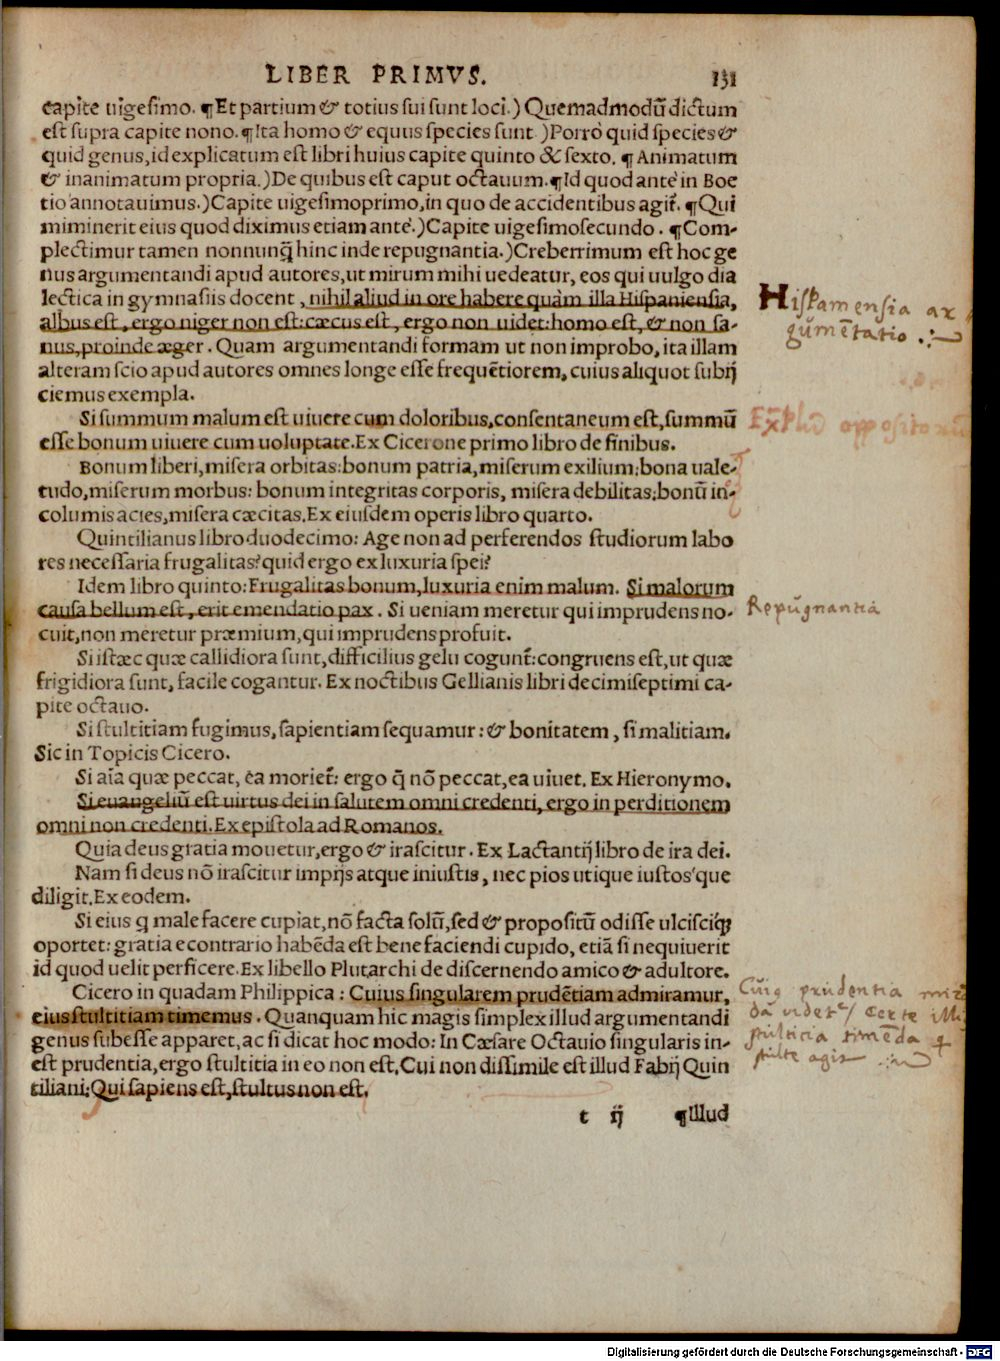 LIBER PRIMVS. 131
capite uigesimo. ¶Et partium & totius sui sunt loci.) Quemadmodũ dictum
est supra capite nono. ¶Ita homo & equus species sunt.) Porrò quid species &
quid genus, id explicatum est libri huius capite quinto & sexto. ¶ Animatum
& inanimatum propria.) De quibus est caput octauum. ¶Id quod antè in Boe
tio annotauimus.) Capite uigesimoprimo, in quo de accidentibus agit̃. ¶Qui
miminerit eius quod diximus etiam antè.) Capite uigesimosecundo. ¶Com-
plectimur tamen nonnunq̃ hinc inde repugnantia.) Creberrimum est hoc ge
nus argumentandi apud autores, ut mirum mihi uedeatur, eos qui uulgo dia
lectica in gymnasiis docent, nihil aliud in ore habere quàm illa Hispaniensia,
albus est, ergo niger non est: cæcus est, ergo non uidet: homo est, & non sa-
nus, proinde æger. Quam argumentandi formam ut non improbo, ita illam
alteram scio apud autores omnes longe esse frequẽtiorem, cuius aliquot subij
ciemus exempla.
Si summum malum est uiuere cum doloribus, consentaneum est, summũ
esse bonum uiuere cum uoluptate. Ex Cicerone primo libro de finibus.
Bonum liberi, misera orbitas: bonum patria, miserum exilium: bona uale-
tudo, miserum morbus: bonum integritas corporis, misera debilitas: bonũ in-
columis acies, misera cæcitas. Ex eiusdem operis libro quarto.
Quintilianus libro duodecimo: Age non ad perferendos studiorum labo
res necessaria frugalitas? quid ergo ex luxuria spei?
Idem libro quinto: Frugalitas bonum, luxuria enim malum. Si malorum
causa bellum est, erit emendatio pax. Si ueniam meretur qui imprudens no-
cuit, non meretur præmium, qui imprudens profuit.
Si istæc quæ callidiora sunt, difficilius gelu cogunt̃: congruens est, ut quæ
frigidiora sunt, facile cogantur. Ex noctibus Gellianis libri decimiseptimi ca-
pite octauo.
Si stultitiam fugimus, sapientiam sequamur: & bonitatem, si malitiam.
Sic in Topicis Cicero.
Si aĩa quæ peccat, ea moriet̃: ergo q̃ nõ peccat, ea uiuet. Ex Hieronymo.
Si euangeliũ est uirtus dei in salutem omni credenti, ergo in perditionem
omni non credenti. Ex epistola ad Romanos.
Quia deus gratia mouetur, ergo & irascitur. Ex Lactantij libro de ira dei.
Nam si deus nõ irascitur impijs atque iniustis, nec pios utique iustos'que
diligit. Ex eodem.
Si eius q male facere cupiat, nõ facta solũ, sed & propositũ odisse ulcisciq́;
oportet: gratia e contrario habẽda est bene faciendi cupido, etiã si nequiuerit
id quod uelit perficere. Ex libello Plutarchi de discernendo amico & adultore.
Cicero in quadam Philippica: Cuius singularem prudẽtiam admiramur,
eius stultitiam timemus. Quanquam hic magis simplex illud argumentandi
genus subesse apparet, ac si dicat hoc modo: In Cæsare Octauio singularis in-
est prudentia, ergo stultitia in eo non est. Cui non dissimile est illud Fabij Quin
tiliani: Qui sapiens est, stultus non est.
t ij ¶Illud
Hispaniensia ar
gumẽtatio
opposito
Repugnantia
prudentia
Certe
stulticia timẽda
stulte agit
Digitalisierung gefördert durch die Deutsche Forschungsgemeinschaft - DFG